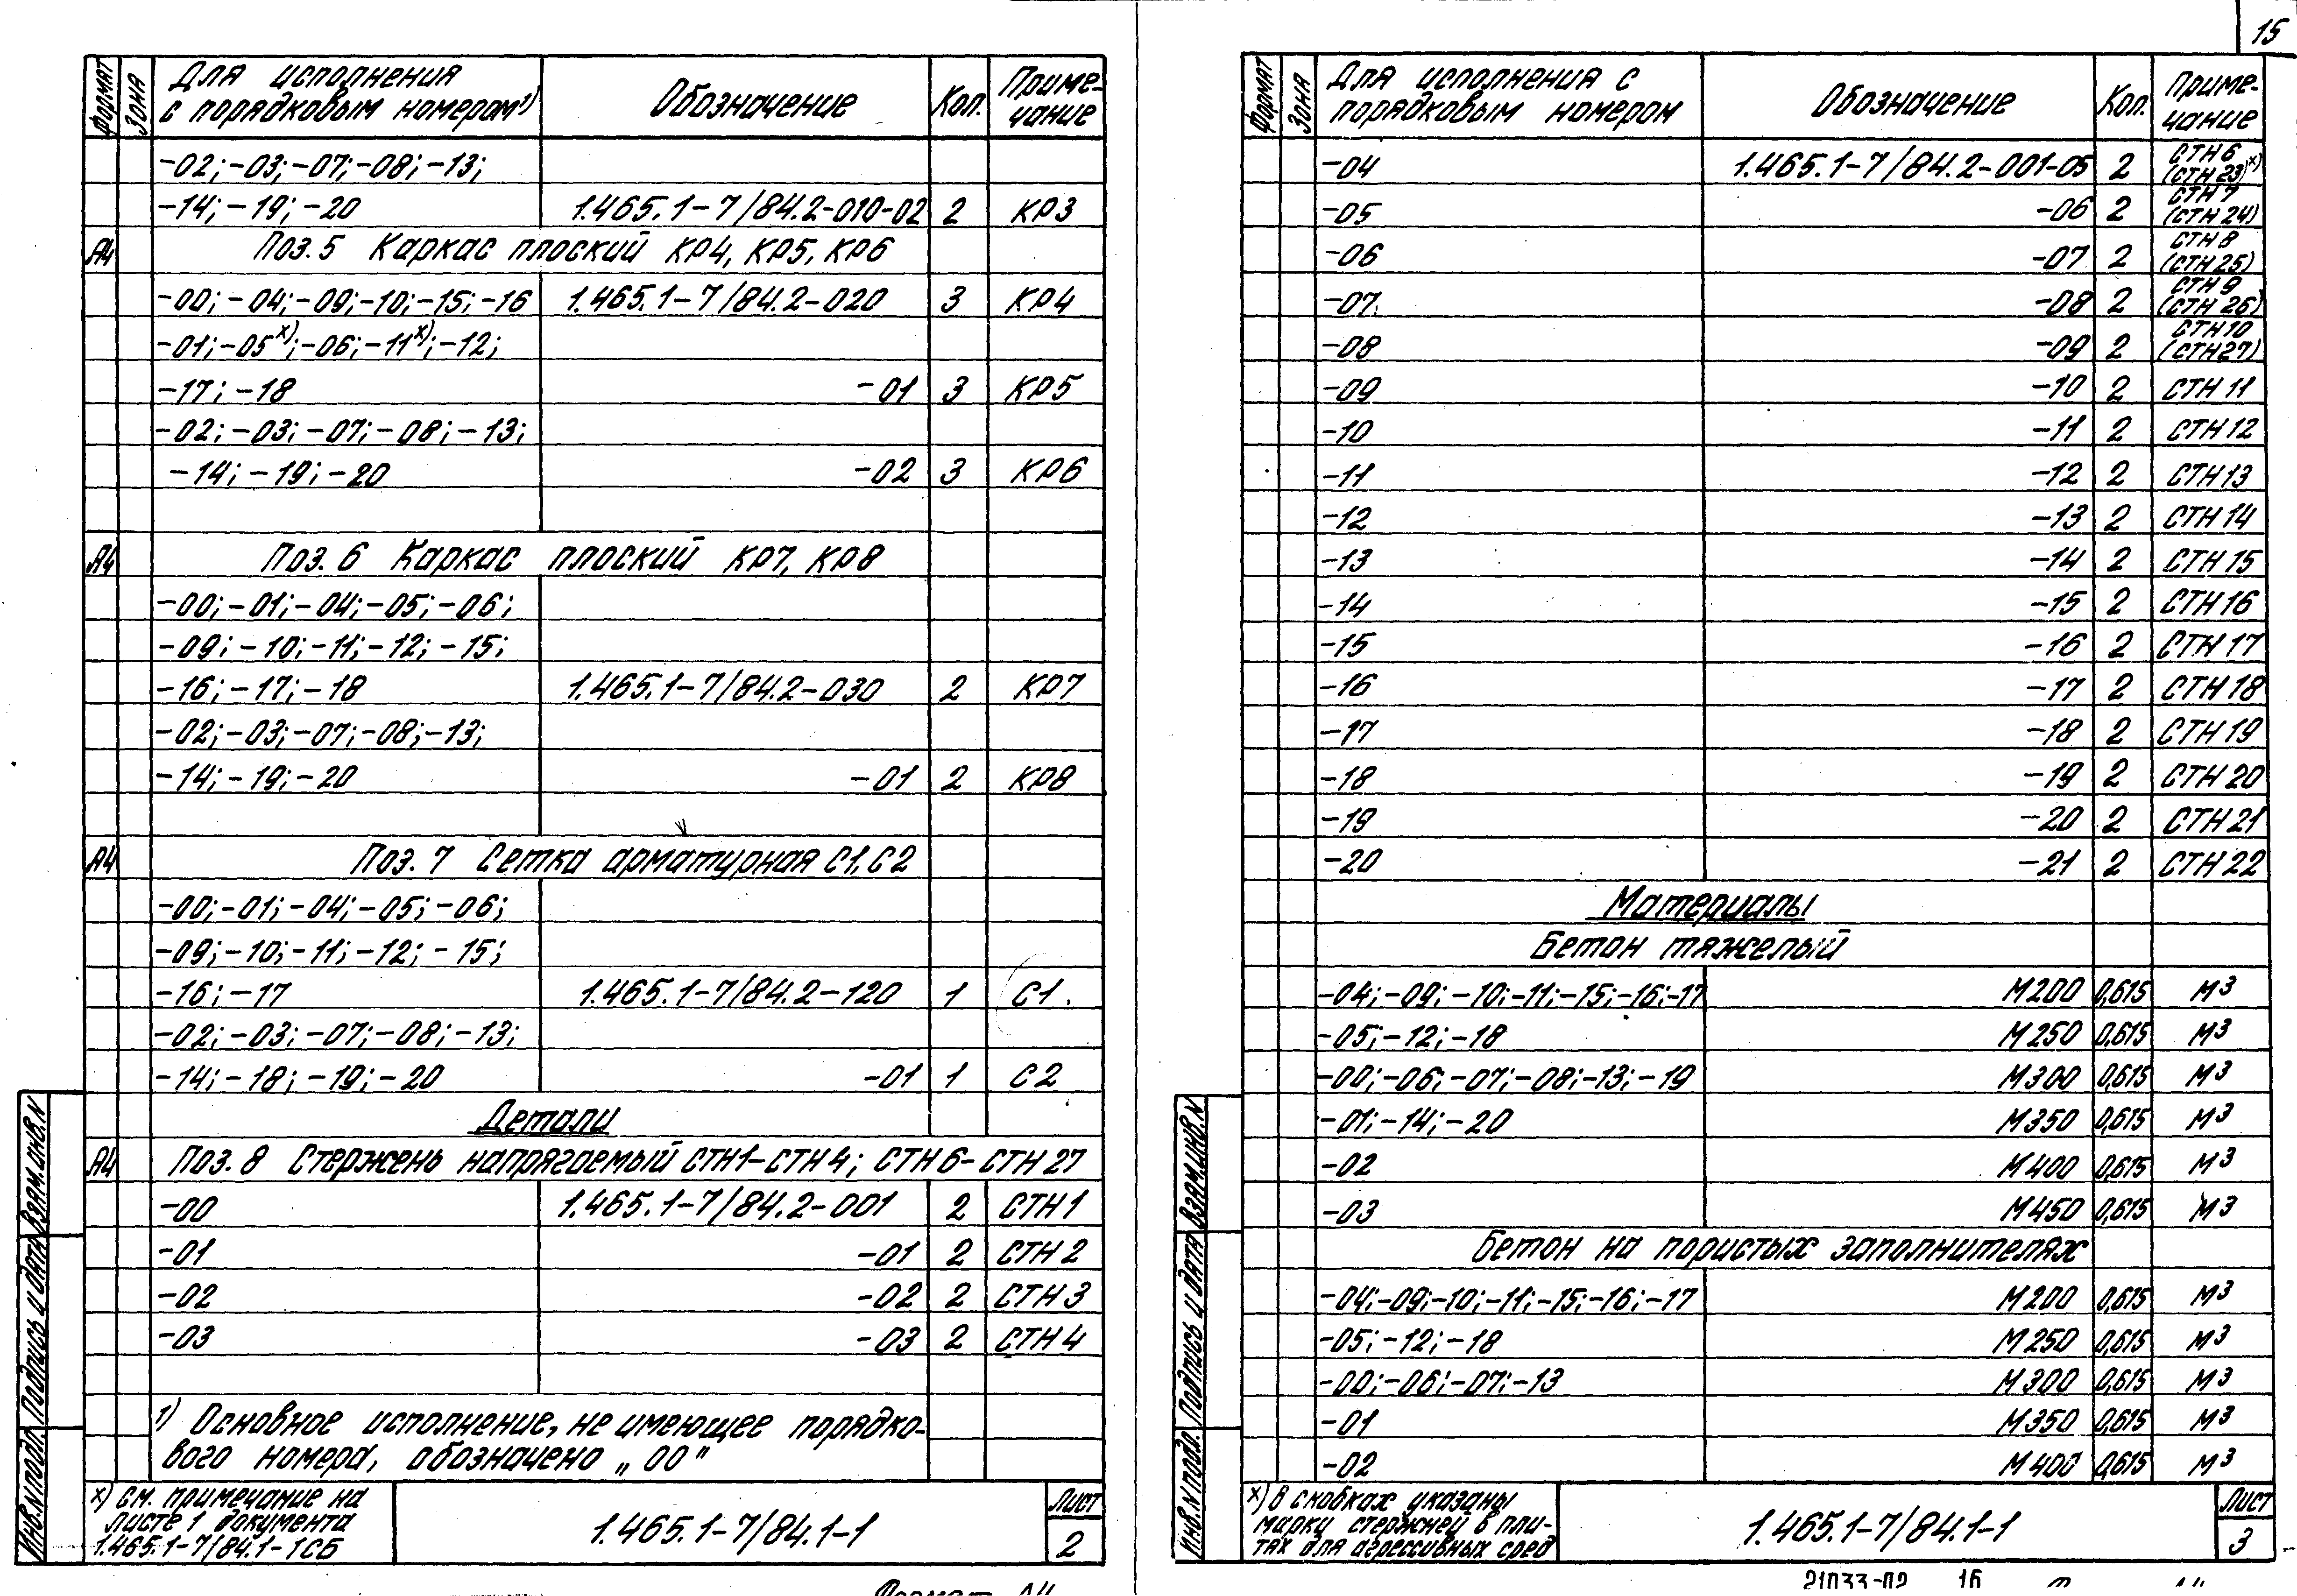 15
Формат
Зона
Для исполнения
с порядковым номером¹)
Обозначение
Кол.
Приме-
чание
-02;-03;-07;-08;-13;
-14;-19;-20 1.465.1-7/84.2-010-02 2 КР3
А4 Поз.5 Каркас плоский КР4, КР5, КР6
-00;-04;-09;-10;-15;-16 1.465.1-7/84.2-020 3 КР4
-01;-05ˣ);-06;-11ˣ);-12;
-17;-18 -01 3 КР5
-02;-03;-07;-08;-13;
-14;-19;-20 -02 3 КР6
А4 Поз.6 Каркас плоский КР7, КР8
-00;-01;-04;-05;-06;
-09;-10;-11;-12;-15;
-16;-17;-18 1.465.1-7/84.2-030 2 КР7
-02;-03;-07;-08;-13;
-14;-19;-20 -01 2 КР8
А4 Поз.7 Сетка арматурная С1, С2
-00;-01;-04;-05;-06;
-09;-10;-11;-12;-15;
-16;-17 1.465.1-7/84.2-120 1 С1
-02;-03;-07;-08;-13;
-14;-18;-19;-20 -01 1 С2
Детали
А4 Поз.8 Стержень напрягаемый СТН1-СТН4; СТН6-СТН27
-00 1.465.1-7/84.2-001 2 СТН1
-01 -01 2 СТН2
-02 -02 2 СТН3
-03 -03 2 СТН4
¹) Основное исполнение, не имеющее порядко-
вого номера, обозначено „00"
х) См. примечание на
листе 1 документа
1.465.1-7/84.1-1СБ
1.465.1-7/84.1-1
Лист
2
Взам.инв.N
Подпись и дата
Инв.N подл.
Формат А4
Формат
Зона
Для исполнения с
порядковым номером
Обозначение
Кол.
Приме-
чание
-04 1.465.1-7/84.2-001-05 2 СТН6
(СТН23)ˣ)
-05 -06 2 СТН7
(СТН24)
-06 -07 2 СТН8
(СТН25)
-07 -08 2 СТН9
(СТН26)
-08 -09 2 СТН10
(СТН27)
-09 -10 2 СТН11
-10 -11 2 СТН12
-11 -12 2 СТН13
-12 -13 2 СТН14
-13 -14 2 СТН15
-14 -15 2 СТН16
-15 -16 2 СТН17
-16 -17 2 СТН18
-17 -18 2 СТН19
-18 -19 2 СТН20
-19 -20 2 СТН21
-20 -21 2 СТН22
Материалы
Бетон тяжелый
-04;-09;-10;-11;-15;-16;-17 М200 0,615 м³
-05;-12;-18 М250 0,615 м³
-00;-06;-07;-08;-13;-19 М300 0,615 м³
-01;-14;-20 М350 0,615 м³
-02 М400 0,615 м³
-03 М450 0,615 м³
Бетон на пористых заполнителях
-04;-09;-10;-11;-15;-16;-17 М200 0,615 м³
-05;-12;-18 М250 0,615 м³
-00;-06;-07;-13 М300 0,615 м³
-01 М350 0,615 м³
-02 М400 0,615 м³
х) В скобках указаны
марки стержней в пли-
тах для агрессивных сред
1.465.1-7/84.1-1
Лист
3
Взам.инв.N
Подпись и дата
Инв.N подл.
21033-02 16